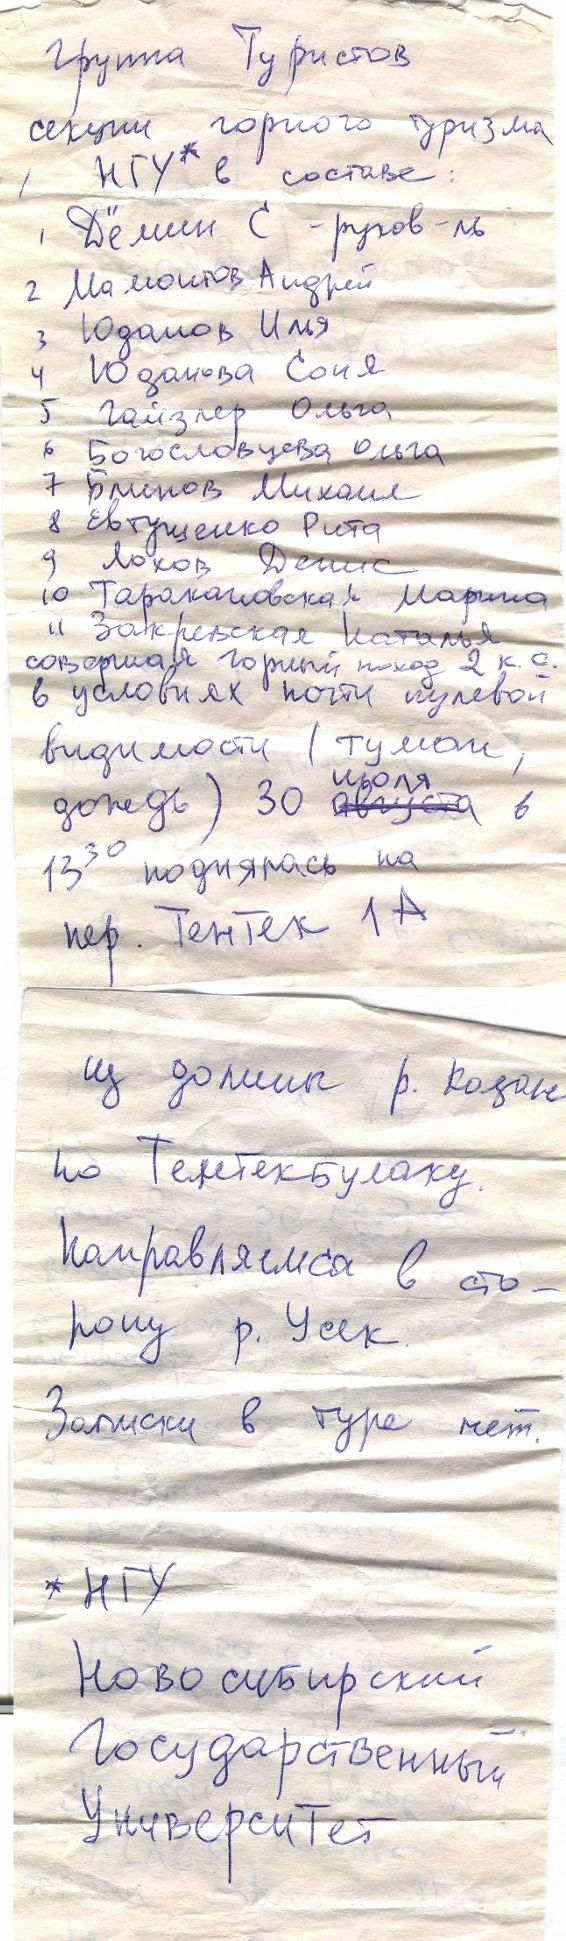 Группа Туристов
секции горного туризма
НГУ* в составе:
1 Дёмин С - руков-ль
2 Мамонтов Андрей
3 Юданов Илья
4 Юданова Соня
5 Гайзлер Ольга
6 Богословцева Ольга
7 Блинов Михаил
8 Евтушенко Рита
9 Лохов Денис
10 Таракановская Марина
11 Закревская Наталья
совершая горный поход 2 к.с.
в условиях почти нулевой
видимости (туман,
июля
дождь) 30 августа в
13 30 поднялась на
пер. Тентек 1А
из долины р. Казан
по Тентекбулаку.
Направляемся в сто-
рону р. Усек
Записки в туре нет.
* НГУ
Новосибирский
Государственный
Университет